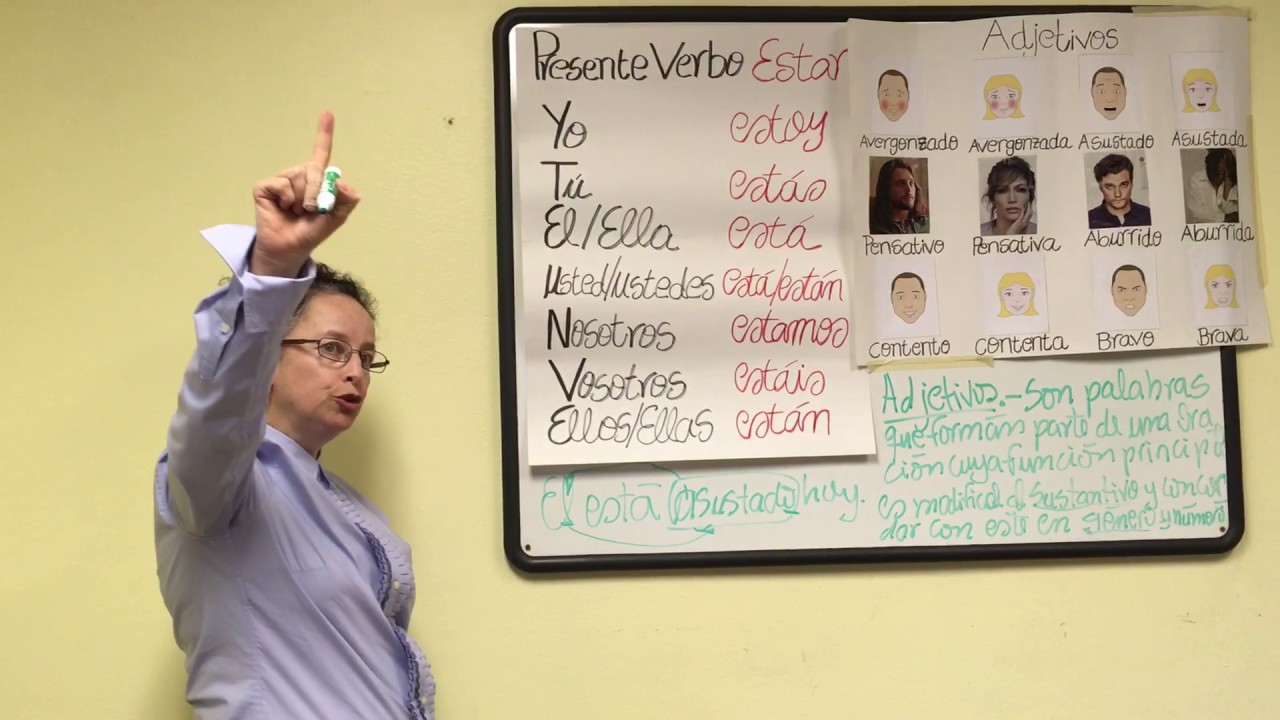 Presente Verbo Estar
Yo estoy
Tú estás
El/Ella está
Usted/ustedes está/están
Nosotros estamos
Vosotros estáis
Ellos/Ellas están
El está asustado hoy.
Adjetivos
Avergonzado Avergonzada Asustado Asustada
Pensativo Pensativa Aburrido Aburrida
Contento Contenta Bravo Brava
Adjetivos.-Son palabras
que forman parte de una ora
ción cuya función princip
es modificar el sustantivo y concor
dar con este en género y número